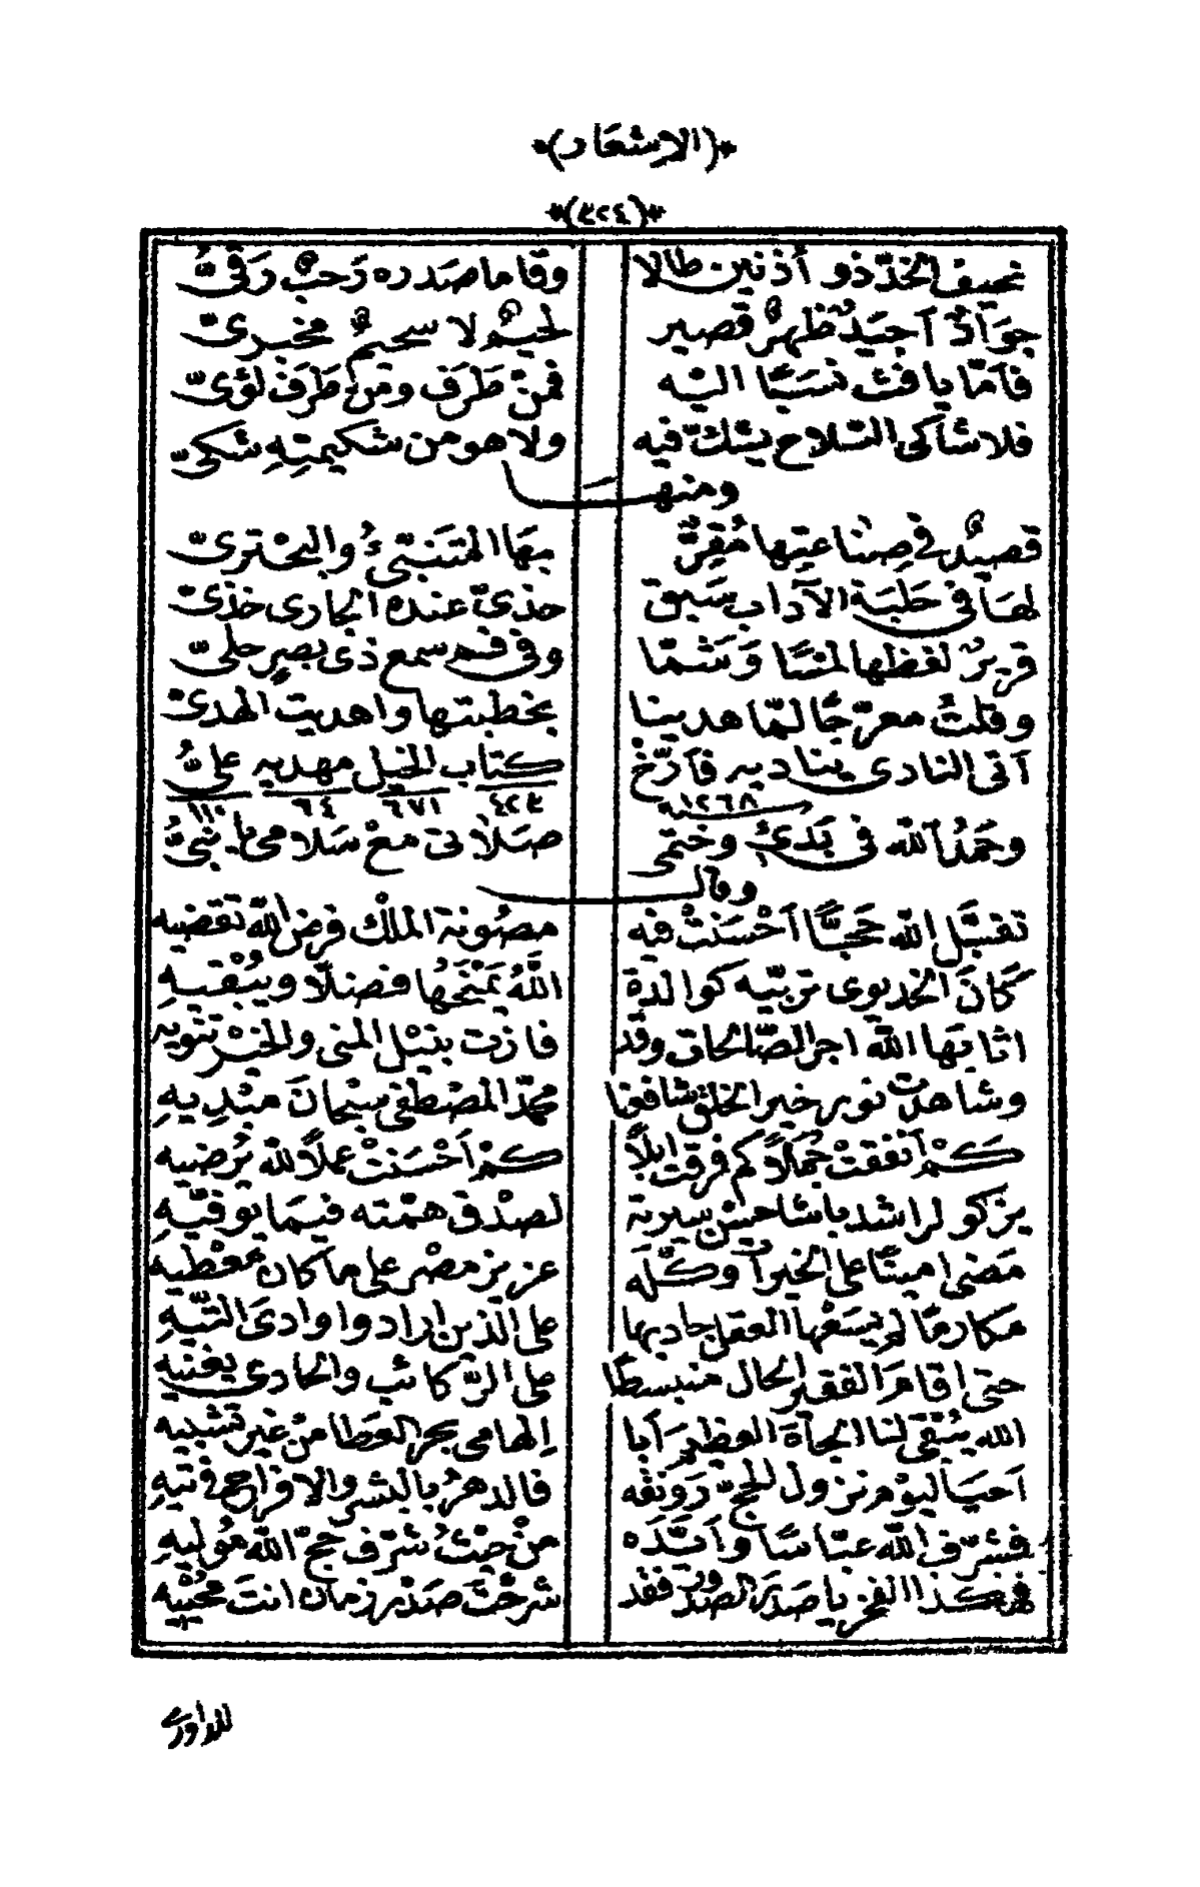 *(الاشعار)*
*(٣٢٤)*
نحيف الخدّ ذو أذنين طالا وقاما صدره رَحبٌ رَقىُّ
جوَادٌ اَجيَدٌ ظهرٌ قصير لحيمٌ لا سحيمٌ مخبرىّ
فاَمّا يافث نسَبًا اليْه فمنْ طَرَف ومَن طَرَف لؤىّ
فلا شاكى السّلاح يشكّ فيه ولا هو من شكيمتِهِ شكىّ
ومنها
قصيدٌ فى صِناعتِها مُقِرٌّ بِهَا المتَنبّىءُ والبحْترىّ
لهَا فى حَلبَة الآداب سَبق حذىّ عنده الحادى خذىّ
قريرٌ لفظها لمسًا وَشمّا وفى فم سمع ذى بصرٍ حلىّ
وقلتُ معرّجًا لمّا هدينا بخطبتها واهديت الهدىّ
اَتى النادى ينادير فاَرّخْ كتاب الخيل مهديه علىُّ
١٢٦٨ ٤٢٣ ٦٧١ ٦٤ ١١٠
وحَمدُ اَلله فى بَدئ وختمى صَلاتى معْ سَلامى يا نبىُّ
وقالــ
تقبَّل اللّه حَجًّا اَحْسَنتْ فيه مصُونة الملْك فرض اللّه تقضيه
كَانَ الخديوى تربّيه كوالدة اللَّهُ يَمْنَحُهَا فضلًا ويُبْقيهِ
اثابَها اللّه اجر الصّالحات وقد فازت بنيْل المنى والخيْر تنويه
وشاهدت نور خير الخلق شافعنا محمّد المصْطفى سبْحانَ مبْدِيهِ
كَمْ اَنفقتْ جُملًا كم فرقت ابلًا كمْ اَحْسَنتْ عملًا لله يُرضيه
يزكو لراشد باشا حسْن سيرته لصدْق همّته فيمَا يوَفّيهِ
مَضى امينًا على الخيرات وكّله عزيز مصْر على ما كان مُعْطيه
مكارمًا لم يسَعْها العقل جاد بها على الذين ارادوا وادىَ التّيهِ
حتى اقامَ الفقير الحال منبسطًا على الرّكائب والحادى يغنيه
الله يُبْقى لنا الجاَهَ العظيم اَبا اِلهامى بحر العَطا منْ غير تشبيه
اَحيَا ليوْم نزول للحجّ رَونقه فالدهرُ بالبشر والافراح فى تيهِ
فشرّف اللّه عبّاسًا واَيَّدَه منْ حيْثُ شرّف حجّ اللّه مُوليهِ
فكذا الفخر يا صَدرَ الصدُور فقد شرَحْتَ صَدْر زمان انتَ مُحْيِيه
للداورى